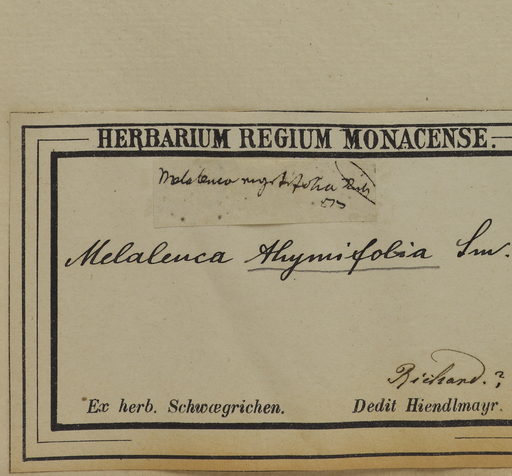 HERBARIUM REGIUM MONACENSE.
Melaleuca
Melaleuca thymifolia Sm.
Richard.?
Ex herb. Schwægrichen. Dedit Hiendlmayr.